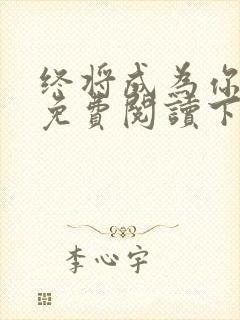 终将成为你
免費閱讀下
李心宇